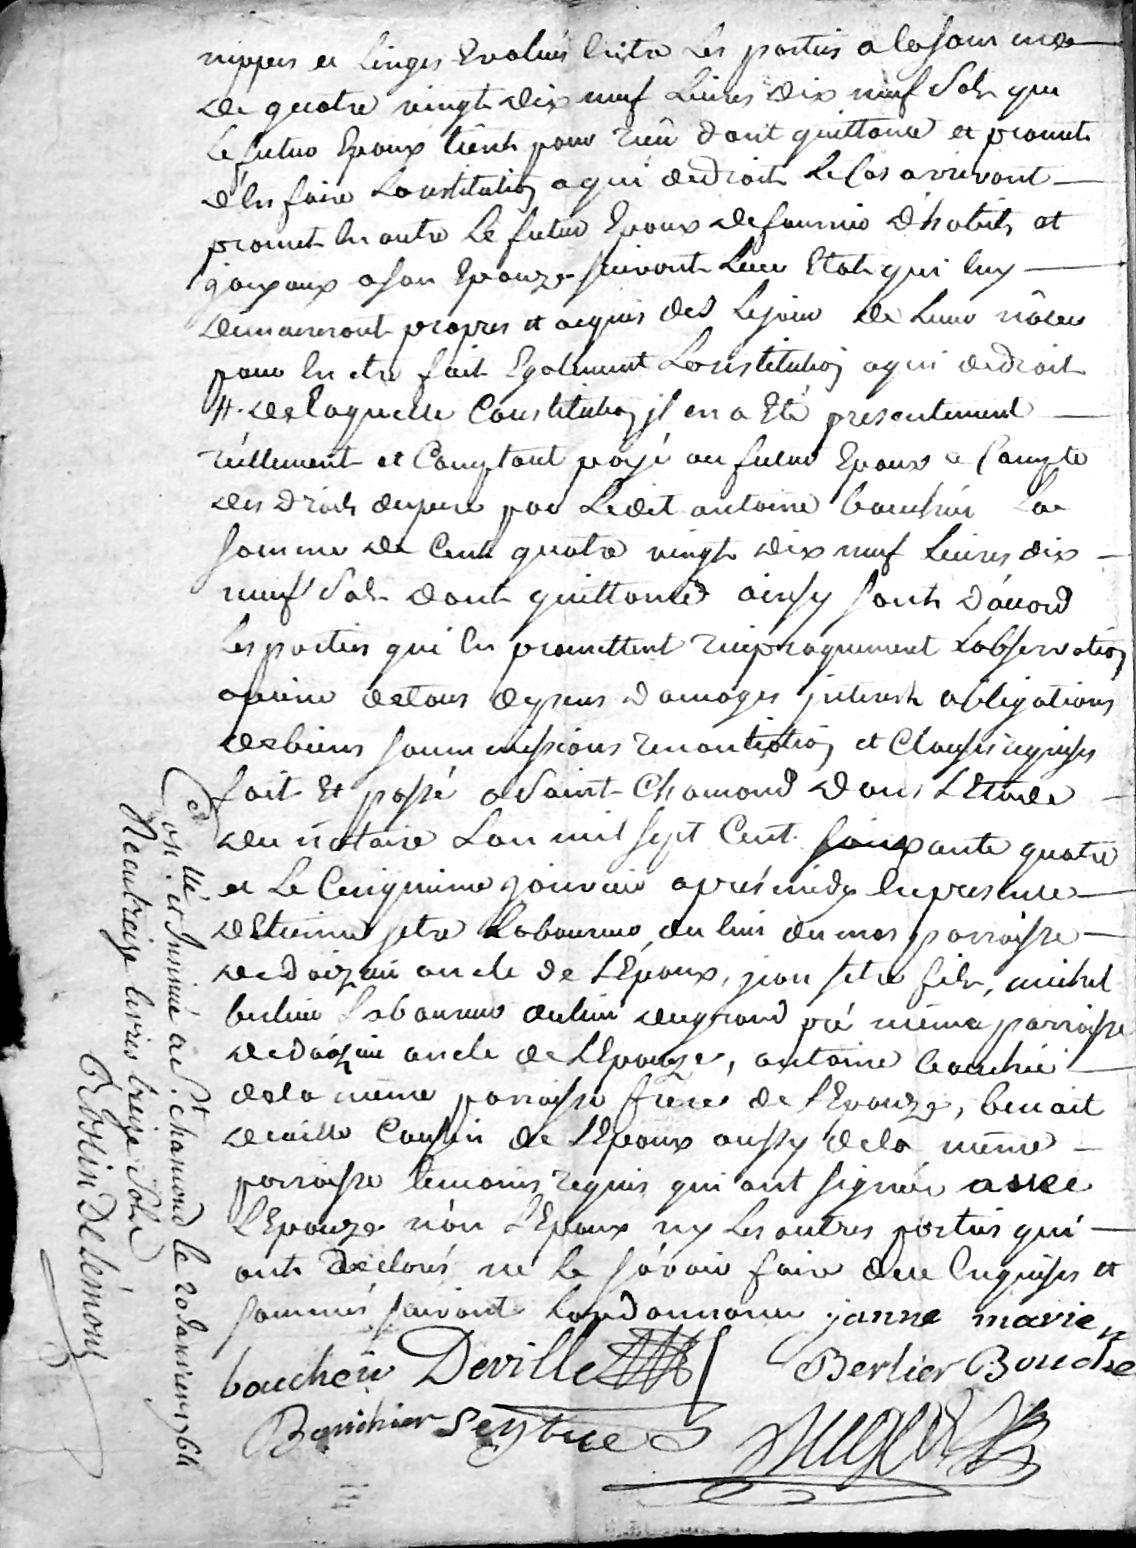 nippes et linges Evalués Entre Les parties a la somme
de quatre vingt dix neuf Livres dix neuf Sols que
Le futur Epoux tient pour reçû dont quittance et promet
d'En faire Constitution a qui de droit Le Cas arrivant
promet En outre Le futur Epoux de fournir d'habits et
joyaux a son Epouze suivant Leur Etat qui luy
demeureront propres et acquis des Le jour de Leur nôces
pour En etre fait Egalement Constitution a qui de droit
#. de Laquelle Constitution jl en a Eté presentement
réellement et Comptant payé au futur Epoux a Compte
des droits du pere par Ledit antoine bouchéii La
somme de Cent quatre vingt dix neuf Livres dix
neuf Sols dont quittance ainsy sont d'accord
Les parties qui En promettent reciproquement L'observation
a peine de tous depens damages jnterets obligations
de biens soummissions renontiation et Clauses requises
fait Et passé a Saint Chamond dans L'Etude
du notaire L'an mil sept Cent soixante quatre
et Le Cinquieme janvier aprés midy En presence
d'Etienne setre Laboureur du lieu du mas parroisse
de doizieu oncle de L'Epoux, jean setre fils, michel
berlier Laboureur du lieu du grand pré même parroisse
de doizieu oncle de L'Epouze, antoine bouchéii
de la même parroisse frere de L'Epouze, benoit
deville Cousin de L'Epoux aussy de la même
parroisse temoins requis qui ont signés avec
L'Epouze nón L'Epoux ny Les autres parties qui
ont déclarés né le sçavoir faire de ce Enquises et
sommés suivant L'ordonnance janne marie
boucheii Deville Berlier Bouche
Bouchier Seytre
Con.llé et Insinué a S.t chamond le 20 Janvier 1764
Recu treize livres treize Sols